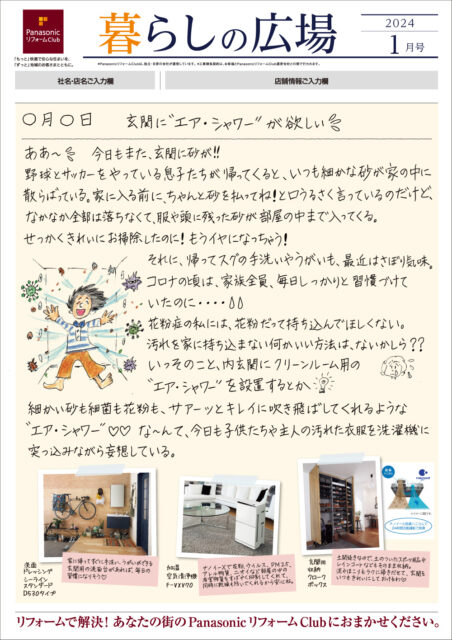 Panasonic
リフォームClub
「もっと」快適で安心な住まいを、
「ずっと」地域のお客さまとともに。
暮らしの広場
2024
1月号
社名・店名ご入力欄
店舗情報ご入力欄
〇月〇日 玄関に"エア・シャワー"が欲しい
ああ〜 今日もまた、玄関に砂が!!
野球とサッカーをやっている息子たちが帰ってくると、いつも細かな砂が家の中に
散らばっている。家に入る前に、ちゃんと砂を払ってね!と口うるさく言っているのだけど、
なかなか全部は落ちなくて、服や頭に残った砂が部屋の中まで入ってくる。
せっかくきれいにお掃除したのに!もうイヤになっちゃう!
それに、帰ってスグの手洗いやうがいも、最近はさぼり気味。
コロナの頃は、家族全員、毎日しっかりと習慣づけて
いたのに・・・・
花粉症の私には、花粉だって持ち込んでほしくない。
汚れを家に持ち込まない何かいい方法は、ないかしら??
いっそのこと、内玄関にクリーンルーム用の
"エア・シャワー"を設置するとか、
細かい砂も細菌も花粉も、サアーッとキレイに吹き飛ばしてくれるような
"エア・シャワー"♡♡ な〜んて、今日も子供たちや主人の汚れた衣服を洗濯機に
突っ込みながら妄想している。
洗面
ドレッシング
シーライン
スタンダード
D530タイプ
家に帰ってすぐに手洗い、うがいができる
玄関用の洗面台があれば、毎日の
習慣になりそう♡
加湿
空気清浄機
F-VXV70
ナノイーXで花粉、ウイルス、PM2.5、
玄関用
収納
クローク
ボックス
リフォームで解決! あなたの街のPanasonicリフォームClubにおまかせください。